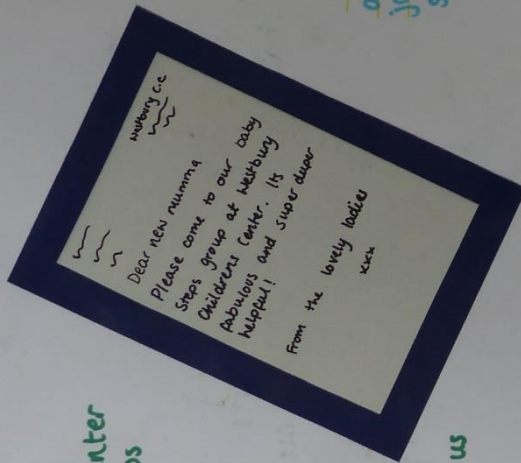 Westbury C.C
Dear new mumma
Please come to our baby
steps group at Westbury
Childrens Center. Its
fabulous and super duper
helpful!
From the lovely ladies
xxx
nter
os
us